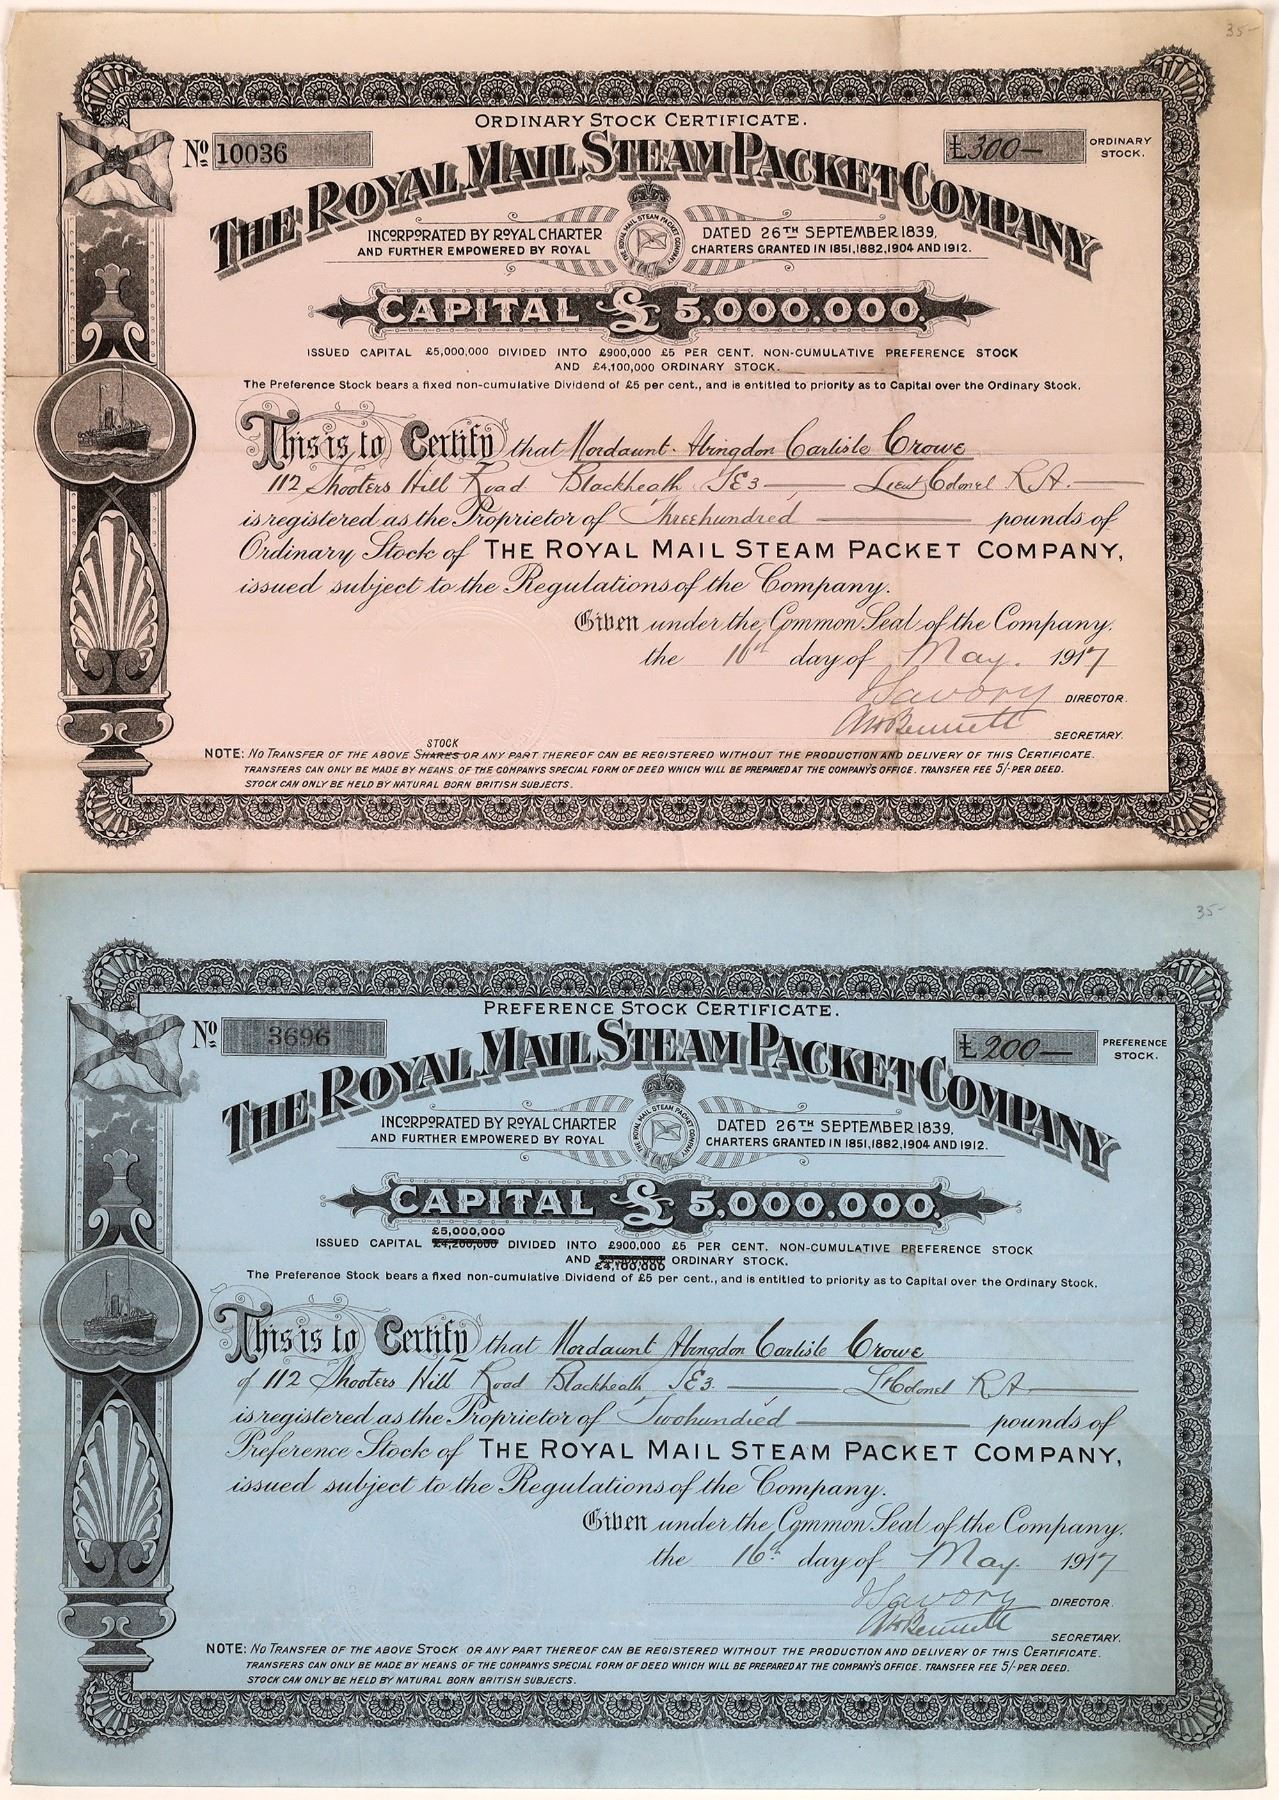 35-
ORDINARY STOCK CERTIFICATE.
No 10036
£300—
ORDINARY STOCK.
THE ROYAL MAIL STEAM PACKET COMPANY
THE ROYAL MAIL STEAM PACKET COMPANY
INCORPORATED BY ROYAL CHARTER DATED 26TH SEPTEMBER 1839,
AND FURTHER EMPOWERED BY ROYAL CHARTERS GRANTED IN 1851, 1882, 1904 AND 1912.
CAPITAL £5,000,000.
ISSUED CAPITAL £5,000,000 DIVIDED INTO £900,000 £5 PER CENT. NON-CUMULATIVE PREFERENCE STOCK
AND £4,100,000 ORDINARY STOCK.
The Preference Stock bears a fixed non-cumulative Dividend of £5 per cent., and is entitled to priority as to Capital over the Ordinary Stock.
This is to Certify that Mordaunt Abingdon Carlisle Crowe
112 Shooters Hill Road Blackheath SE3 — Lieut Colonel R.A. —
is registered as the Proprietor of Threehundred — pounds of
Ordinary Stock of THE ROYAL MAIL STEAM PACKET COMPANY,
issued subject to the Regulations of the Company.
Given under the Common Seal of the Company.
the 16th day of May. 1917
Savory DIRECTOR.
Bennett SECRETARY.
STOCK
NOTE: NO TRANSFER OF THE ABOVE SHARES OR ANY PART THEREOF CAN BE REGISTERED WITHOUT THE PRODUCTION AND DELIVERY OF THIS CERTIFICATE.
TRANSFERS CAN ONLY BE MADE BY MEANS OF THE COMPANYS SPECIAL FORM OF DEED WHICH WILL BE PREPARED AT THE COMPANY'S OFFICE. TRANSFER FEE 5/- PER DEED.
STOCK CAN ONLY BE HELD BY NATURAL BORN BRITISH SUBJECTS.
35-
PREFERENCE STOCK CERTIFICATE.
No 3696
£200—
PREFERENCE STOCK.
THE ROYAL MAIL STEAM PACKET COMPANY
THE ROYAL MAIL STEAM PACKET COMPANY
INCORPORATED BY ROYAL CHARTER DATED 26TH SEPTEMBER 1839,
AND FURTHER EMPOWERED BY ROYAL CHARTERS GRANTED IN 1851, 1882, 1904 AND 1912.
CAPITAL £5,000,000.
£5,000,000
ISSUED CAPITAL £4,200,000 DIVIDED INTO £900,000 £5 PER CENT. NON-CUMULATIVE PREFERENCE STOCK
AND ORDINARY STOCK.
£4,100,000
The Preference Stock bears a fixed non-cumulative Dividend of £5 per cent., and is entitled to priority as to Capital over the Ordinary Stock.
This is to Certify that Mordaunt Abingdon Carlisle Crowe
of 112 Shooters Hill Road Blackheath, SE3. — Lt Colonel R.A —
is registered as the Proprietor of Twohundred — pounds of
Preference Stock of THE ROYAL MAIL STEAM PACKET COMPANY,
issued subject to the Regulations of the Company.
Given under the Common Seal of the Company.
the 16th day of May. 1917
Savory DIRECTOR.
Bennett SECRETARY.
NOTE: NO TRANSFER OF THE ABOVE STOCK OR ANY PART THEREOF CAN BE REGISTERED WITHOUT THE PRODUCTION AND DELIVERY OF THIS CERTIFICATE.
TRANSFERS CAN ONLY BE MADE BY MEANS OF THE COMPANYS SPECIAL FORM OF DEED WHICH WILL BE PREPARED AT THE COMPANY'S OFFICE. TRANSFER FEE 5/- PER DEED.
STOCK CAN ONLY BE HELD BY NATURAL BORN BRITISH SUBJECTS.